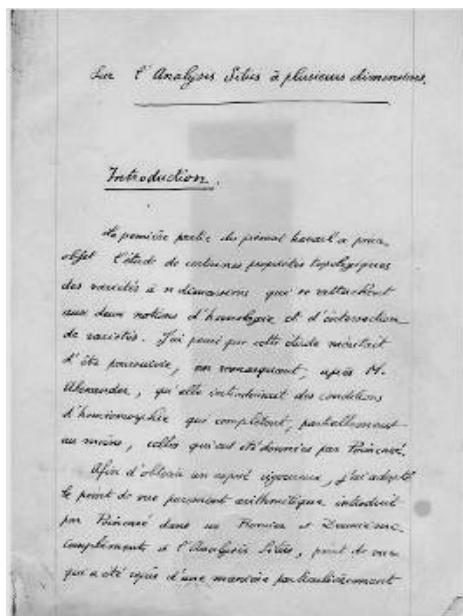 Sur l'Analysis Situs à plusieurs dimensions.
Introduction.
La première partie du présent travail a pour
objet l'étude de certaines propriétés topologiques
des variétés à n dimensions qui se rattachent
aux deux notions d'homologie et d'intersection
de variétés. J'ai pensé que cette étude méritait
d'être poursuivie, en remarquant, après M.
Alexander, qu'elle introduisait des conditions
d'homéomorphie qui complètent, partiellement
au moins, celles qui ont été données par Poincaré.
Afin d'obtenir un exposé rigoureux, j'ai adopté
le point de vue purement arithmétique introduit
par Poincaré dans un Premier et Deuxième
complément à l'Analysis Situs, point de vue
qui a été repris d'une manière particulièrement